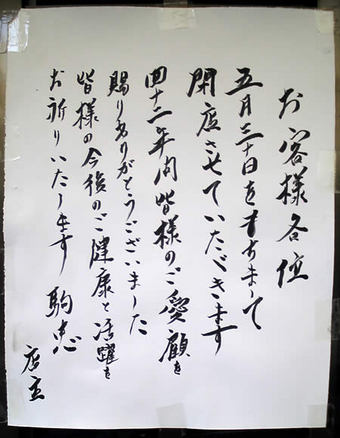 お客様各位
五月三十日をもちまして
閉店させていただきます
四十二年間皆様のご愛顧を
賜りありがとうございました
皆様の今後のご健康と活躍を
お祈りいたします 駒忠
店主